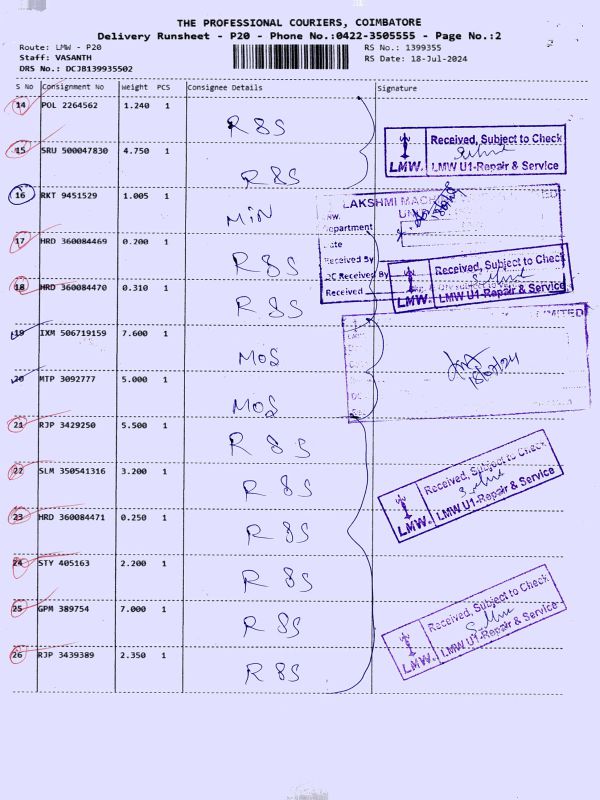 THE PROFESSIONAL COURIERS, COIMBATORE
Delivery Runsheet - P20 - Phone No.:0422-3505555 - Page No.:2
Route: LMW - P20
RS No.: 1399355
Staff: VASANTH
RS Date: 18-Jul-2024
DRS No.: DCJB139935502
S No Consignment No Weight PCS Consignee Details Signature
14 POL 2264562 1.240 1 R&S
15 SRU 500047830 4.750 1 R&S
Received, Subject to Check
LMW. LMW U1-Repair & Service
16 RKT 9451529 1.005 1 MIN
LAKSHMI MACH
Department
Date
Received By
DC Received By
Received
17 HRD 360084469 0.200 1 R&S
18 HRD 360084470 0.310 1 R&S
Received, Subject to Check
LMW. LMW U1-Repair & Service
19 IXM 506719159 7.600 1 MOS
LIMITED
20 MTP 3092777 5.000 1 MOS
18/07/24
21 RJP 3429250 5.500 1 R&S
22 SLM 350541316 3.200 1 R&S
Received, Subject to Check
LMW. LMW U1-Repair & Service
23 HRD 360084471 0.250 1 R&S
24 STY 405163 2.200 1 R&S
25 GPM 389754 7.000 1 R&S
Received, Subject to Check
LMW. LMW U1-Repair & Service
26 RJP 3439389 2.350 1 R&S